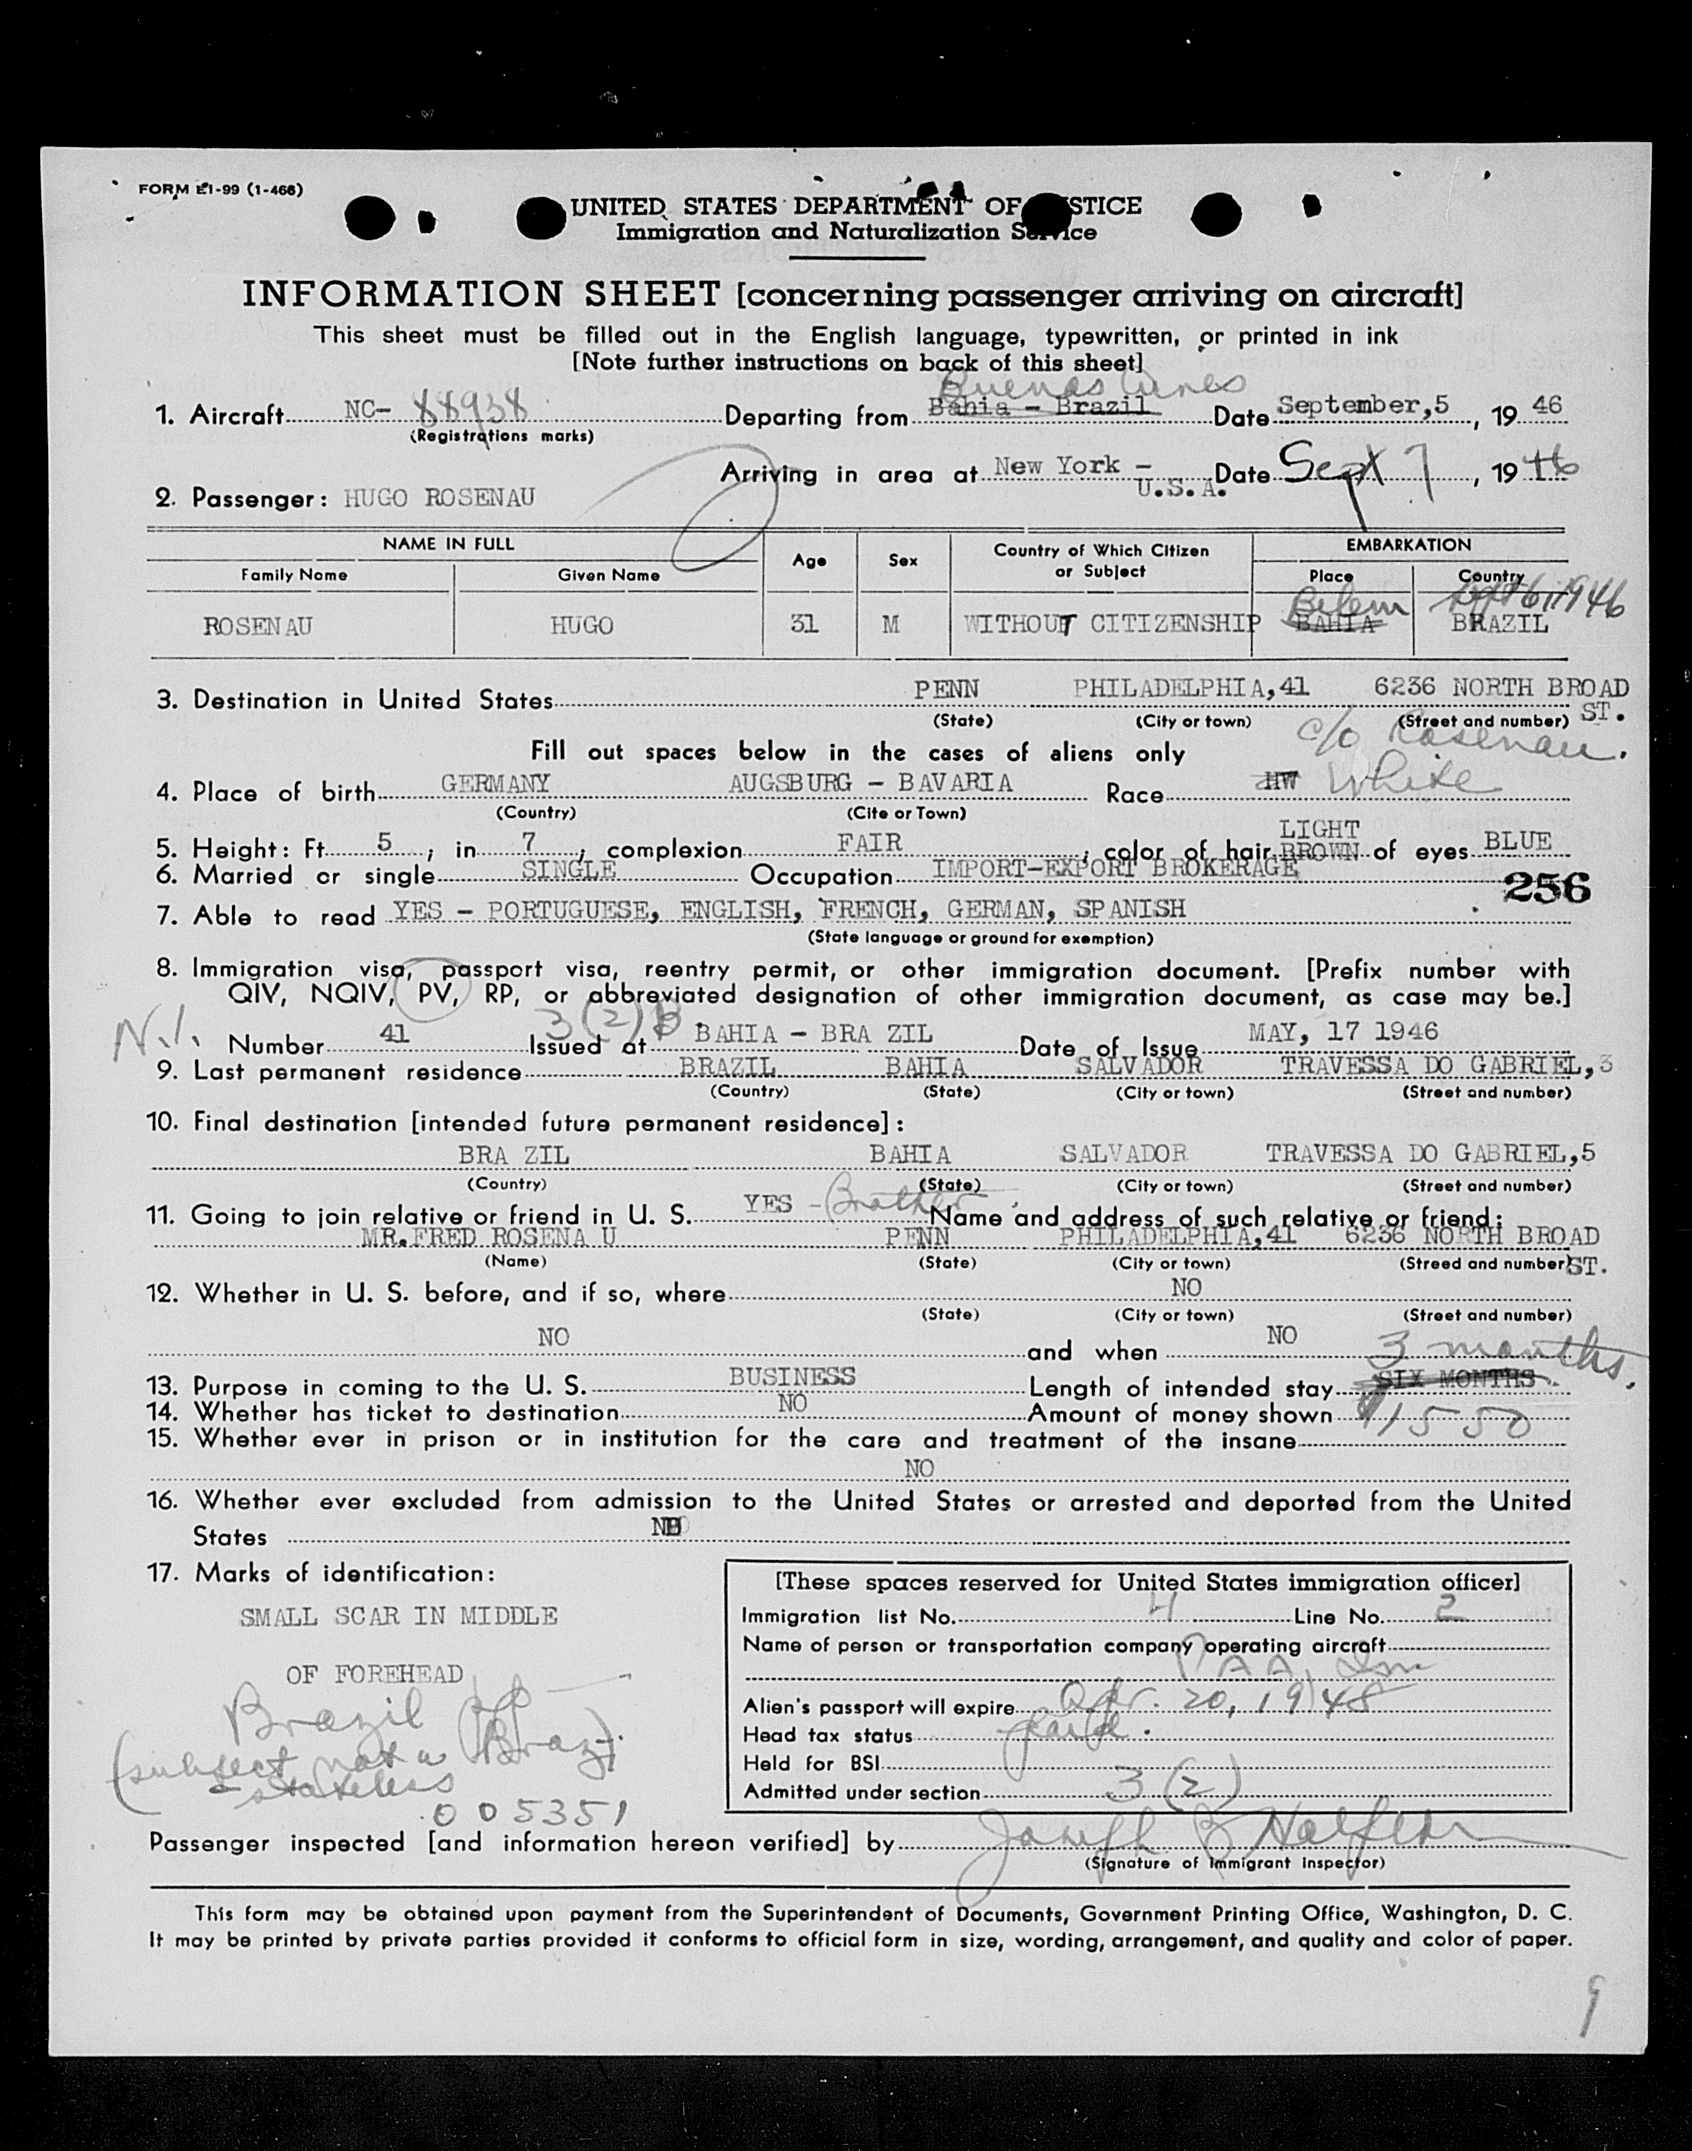 FORM EI-99 (1-466)
UNITED STATES DEPARTMENT OF JUSTICE
Immigration and Naturalization Service
INFORMATION SHEET [concerning passenger arriving on aircraft]
This sheet must be filled out in the English language, typewritten, or printed in ink
[Note further instructions on back of this sheet]
Buenos Aires
1. Aircraft NC- 88938 Departing from Bahia - Brazil Date September,5, 19 46
(Registrations marks)
Arriving in area at New York - U.S.A. Date Sept 7, 19 46
2. Passenger: HUGO ROSENAU
NAME IN FULL Age Sex Country of Which Citizen or Subject EMBARKATION
Family Name Given Name Place Country
Belem Sept 6, 1946
ROSENAU HUGO 31 M WITHOUT CITIZENSHIP BAHIA BRAZIL
3. Destination in United States PENN PHILADELPHIA,41 6236 NORTH BROAD ST.
(State) (City or town) (Street and number)
c/o Rosenau.
Fill out spaces below in the cases of aliens only
4. Place of birth GERMANY AUGSBURG - BAVARIA Race HW White
(Country) (Cite or Town)
5. Height: Ft. 5; in 7; complexion FAIR; color of hair LIGHT BROWN of eyes BLUE
6. Married or single SINGLE Occupation IMPORT-EXPORT BROKERAGE
256
7. Able to read YES - PORTUGUESE, ENGLISH, FRENCH, GERMAN, SPANISH
(State language or ground for exemption)
8. Immigration visa, passport visa, reentry permit, or other immigration document. [Prefix number with
QIV, NQIV, PV, RP, or abbreviated designation of other immigration document, as case may be.]
N.I. 3(2)B
Number 41 Issued at BAHIA - BRA ZIL Date of Issue MAY, 17 1946
9. Last permanent residence BRAZIL BAHIA SALVADOR TRAVESSA DO GABRIEL,3
(Country) (State) (City or town) (Street and number)
10. Final destination [intended future permanent residece]:
BRA ZIL BAHIA SALVADOR TRAVESSA DO GABRIEL,5
(Country) (State) (City or town) (Street and number)
11. Going to join relative or friend in U. S. YES - Brother Name and address of such relative or friend:
MR.FRED ROSENA U PENN PHILADELPHIA,41 6236 NORTH BROAD ST.
(Name) (State) (City or town) (Streed and number)
12. Whether in U. S. before, and if so, where NO
(State) (City or town) (Street and number)
NO and when NO
3 months.
13. Purpose in coming to the U. S. BUSINESS Length of intended stay SIX MONTHS
14. Whether has ticket to destination NO Amount of money shown $1550
15. Whether ever in prison or in institution for the care and treatment of the insane
NO
16. Whether ever excluded from admission to the United States or arrested and deported from the United
States NO
17. Marks of identification:
SMALL SCAR IN MIDDLE
OF FOREHEAD
Brazil PP
(subject not a Braz.)
- stateless
005351
[These spaces reserved for United States immigration officer]
Immigration list No. 4 Line No. 2
Name of person or transportation company operating aircraft
PAA, Inc
Alien's passport will expire Apr. 20, 1948
Head tax status paid.
Held for BSI
Admitted under section 3(2)
Passenger inspected [and information hereon verified] by Joseph B Halfern
(Signature of Immigrant Inspector)
This form may be obtained upon payment from the Superintendent of Documents, Government Printing Office, Washington, D. C.
It may be printed by private parties provided it conforms to official form in size, wording, arrangement, and quality and color of paper.
9